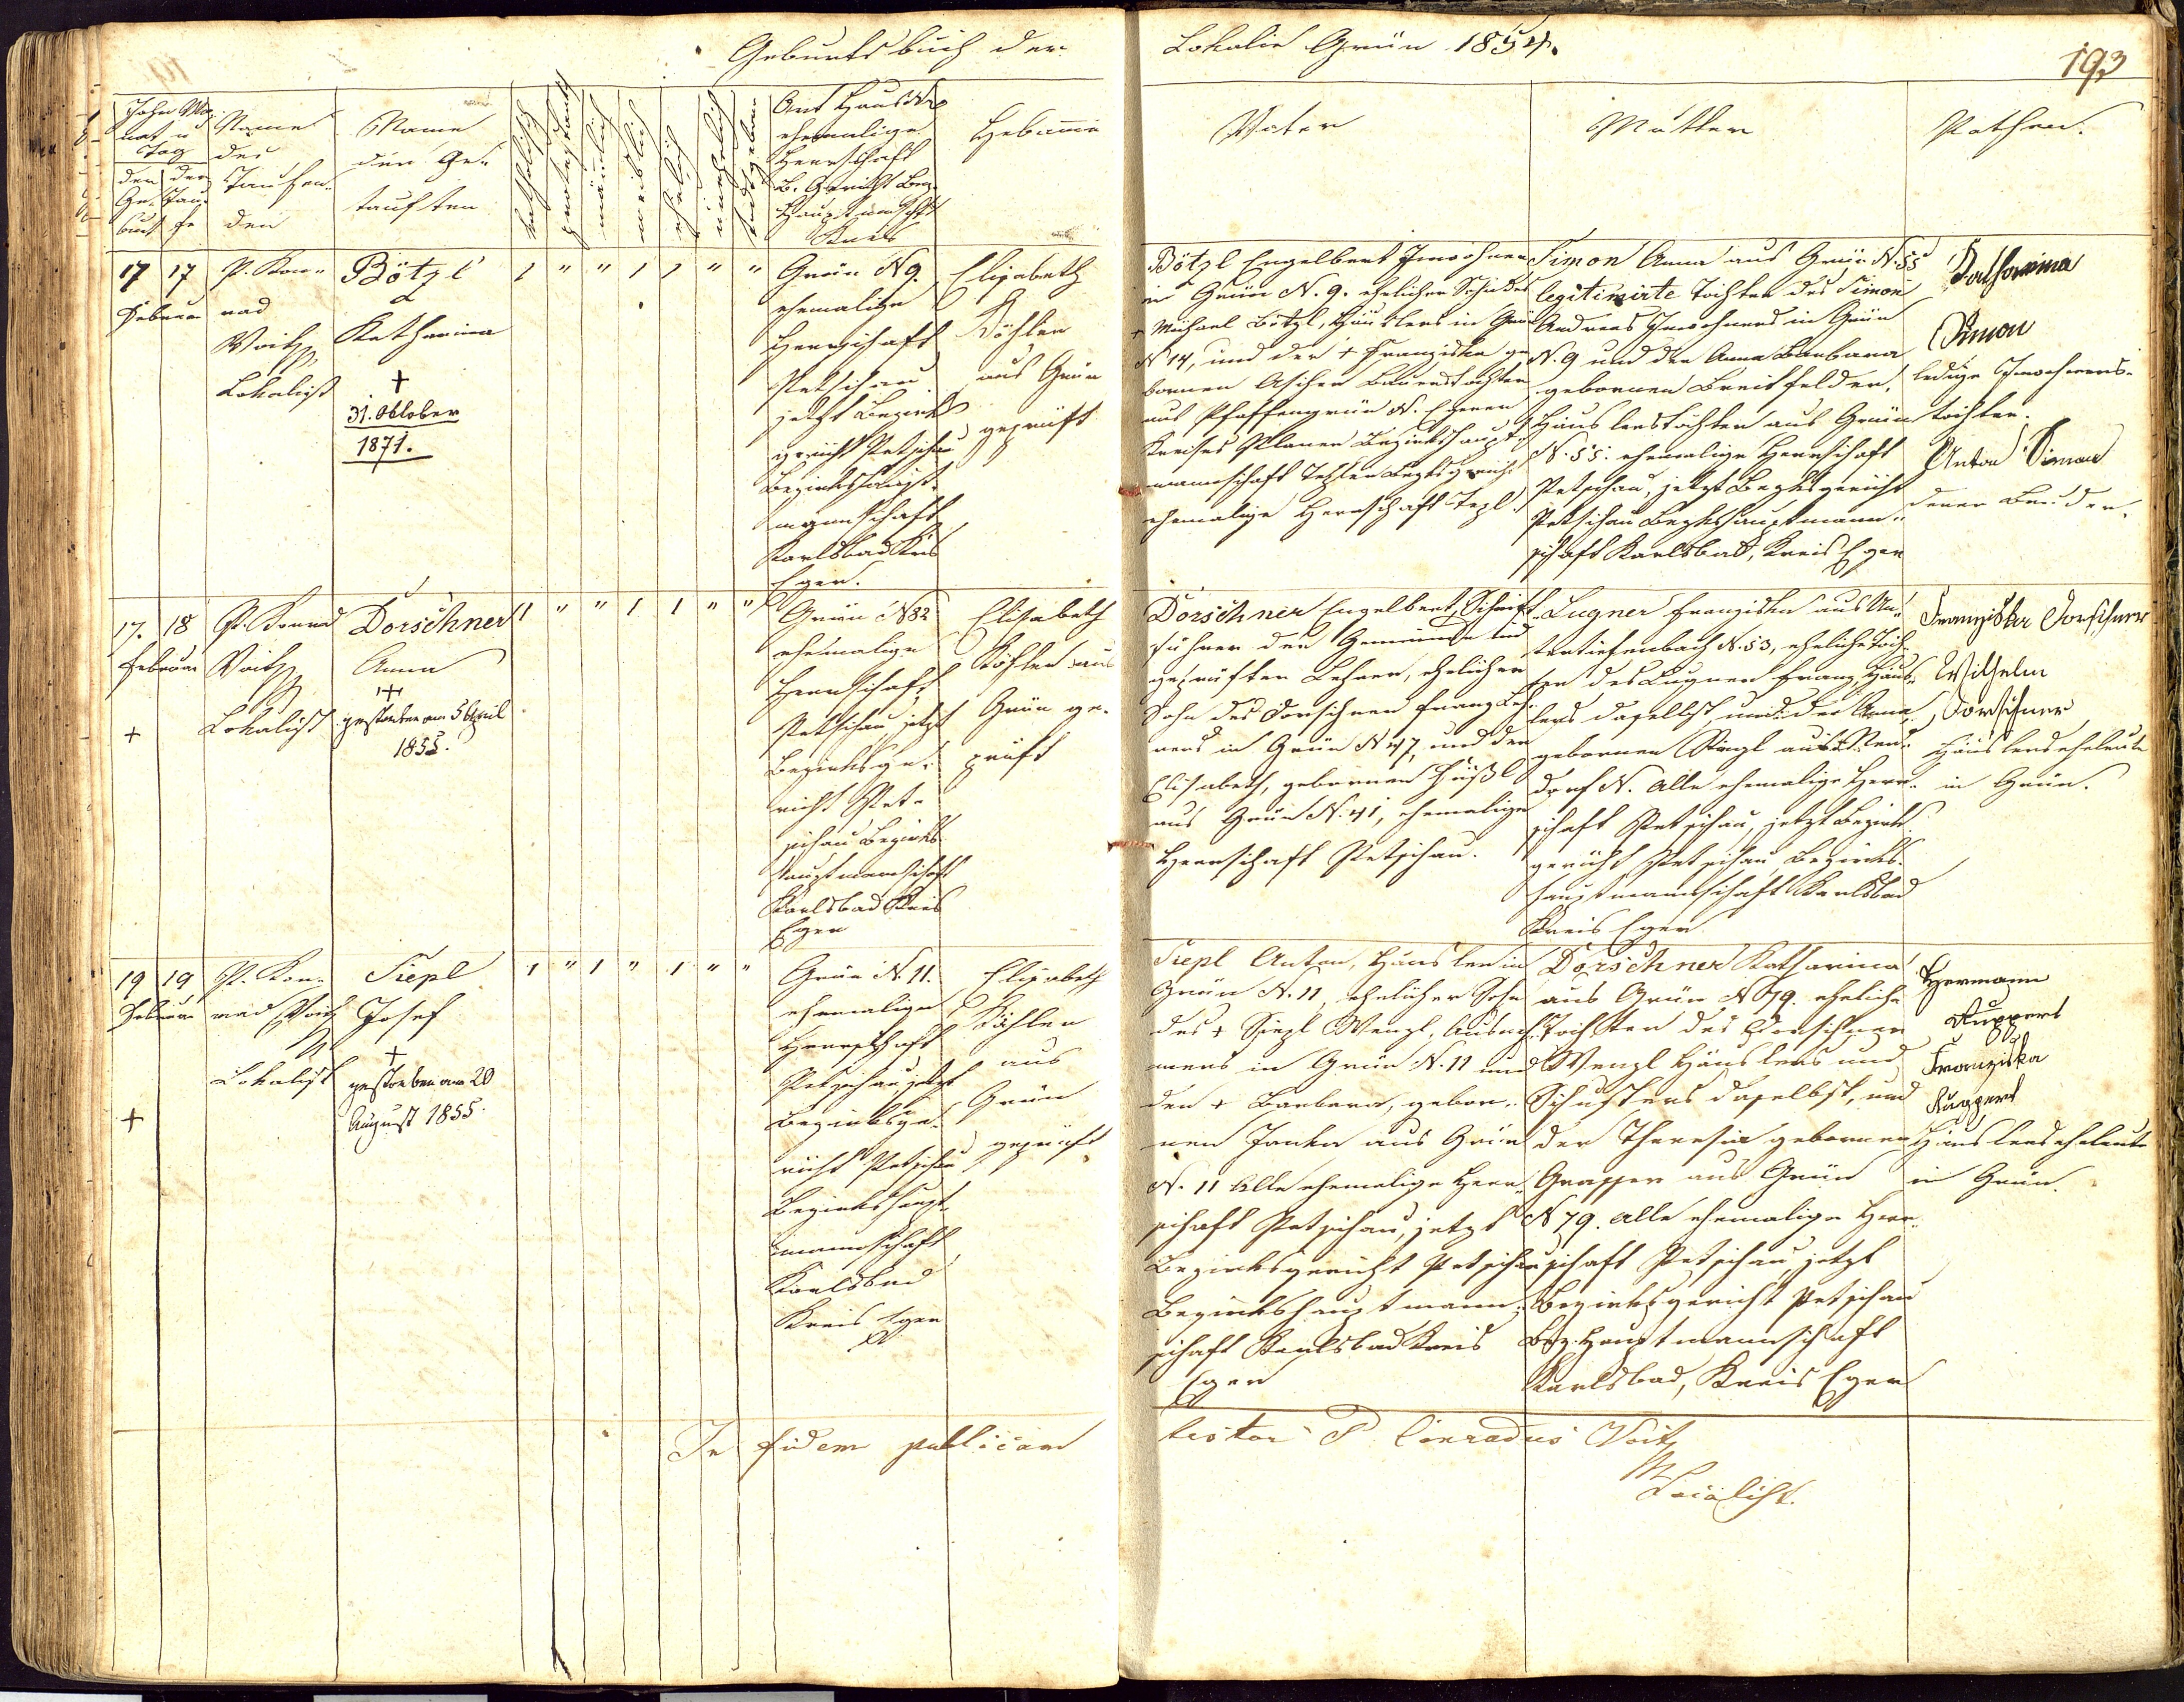 Geburtsbuch der
Lokalie Grün 1854.
193
Jahr Mo-
nat u
Tag
der Ge-
burt
der
Tau-
fe
Name
des
Taufen-
den
Name
der Ge-
tauften
katholisch
protestantisch
männlich
weiblich
ehelich
unehelich
todtgeboren
Ort Haus Nro
ehemalige
Herrschaft
B. Gericht Bez.
Hauptmannschft
Kreis
Hebamme
Vater
Mutter
Pathen.
17
Februar
17
P. Kon-
rad
Voitz
Lokalist
Bötzl
Katharina
+
31. Oktober
1871.
1 " " 1 1 " "
Grün N 9.
ehemalige
Herrschaft
Petschau
jetzt Bezirks
gericht Petschau
Bezirkshaupt-
mannschaft
Karlsbad Kreis
Eger.
Elisabeth
Köhler
aus Grün
geprüft
Bötzl Engelbert Inwohner
in Grün N. 9. ehelicher Sohn des
+ Michael Bötzl, Häuslers in Grün
N 14, und der + Franziska ge-
bornen Ascher Bauerstochter
aus Pfaffengrün N. Egerer
Kreises Planer Bezirkshaupt-
mannschaft Tepler Bezksgericht
ehemalige Herrschaft Tepl.
Simon Anna aus Grün N. 55
legitimirte Tochter des Simon
Andreas Inwohners in Grün
N. 9 und der Anna Barbara
gebornen Breitfelder,
Häuslerstochter aus Grün
N. 55. ehemalige Herrschaft
Petschau, jetzt Bezksgericht
Petschau Bezkshauptmann-
schaft Karlsbad, Kreis Eger
Katharina
Simon
ledige Inwohners-
tochter.
Anton Simon
deren Bruder.
17.
Februar
+
18
P. Konrad
Voitz
Lokalist
Dorschner
Anna
+
gestorben am 5 April
1855.
1 " " 1 1 " "
Grün N 32
ehemalige
Herrschaft
Petschau, jetzt
Bezirksge-
richt Pet-
schau Bezirks-
hauptmannschaft
Karlsbad Kreis
Eger
Elisabeth
Köhler aus
Grün ge-
prüft
Dorschner Engelbert, Schrift-
führer der Gemeinde und
geprüfter Lehrer, ehelicher
Sohn des Dorschner Franz
in Grün N 47, und der
Elisabeth, gebornen Hüßl
aus Grün N. 41, ehemalige
Herrschaft Petschau.
Lugner Franziska aus Un-
tertiefenbach N. 53, eheliche Toch-
ter des Lugner Franz, Häus-
lers daselbst, und der Anna
gebornen Siegl aus Neu-
dorf N. Alle ehemalige Herr-
schaft Petschau, jetzt Bezirks
gericht Petschau, Bezirks-
hauptmannschaft Karlsbad
Kreis Eger
Franziska Dorschner
Wilhelm
Dorschner
Häuslerseheleute
in Grün.
19
Februar
+
19
P. Kon-
rad Voitz
Lokalist
Siepl
Josef
+
gestorben am 20
August 1855.
1 " 1 " 1 " "
Grün N. 11.
ehemalige
Herrschaft
Petschau, jetzt
Bezirksge-
richt Petschau
Bezirkshaupt-
mannschaft
Karlsbad
Kreis Eger
Elisabeth
Köhler
aus
Grün
geprüft
Siepl Anton, Häusler in
Grün N. 11, ehelicher Sohn
des + Siepl Wenzl, Ausneh-
mers in Grün N. 11 und
der + Barbara, gebor-
nen Janka aus Grün
N. 11 Alle ehemalige Herr-
schaft Petschau, jetzt
Bezirksgericht Petschau
Bezirkshauptmann-
schaft Karlsbad Kreis
Eger
Dorschner Katharina
aus Grün N 79. eheliche
Tochter des Dorschner
Wenzl Häuslers und
Schusters daselbst, und
der Theresia gebornen
Grasser aus Grün
N 79. Alle ehemalige Herr-
schaft Petschau jetzt
Bezirksgericht Petschau
Bez. Hauptmannschaft
Karlsbad, Kreis Eger
Hermann
Ruppert
Franziska
Ruppert
Häuslerseheleute
in Grün.
In fidem publicam
testor P Conradus Voitz
Localist.